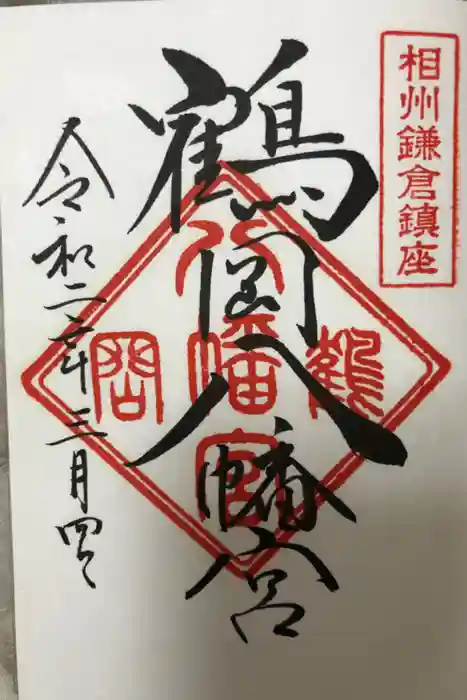 相州鎌倉鎮座
鶴岡八幡宮
鶴
八幡宮
岡
令和二年三月四日